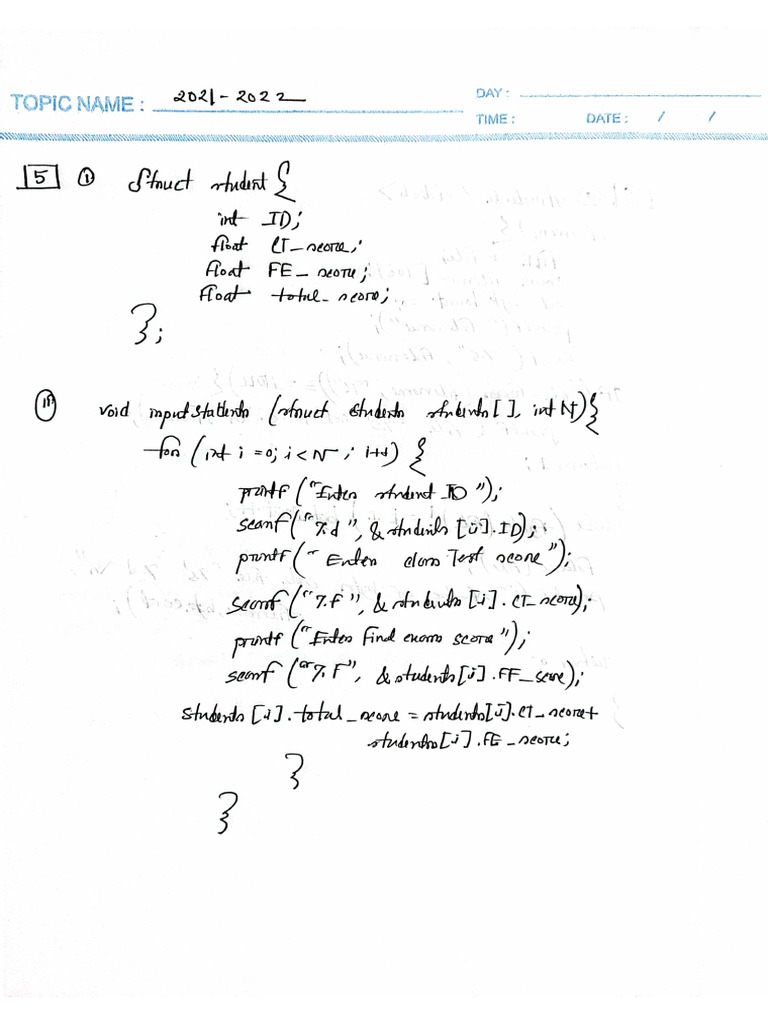 TOPIC NAME : 2021-2022
DAY :
TIME : DATE : / /
5 (i) Struct student {
int ID;
float CT_score;
float FE_score;
float total_score;
};
(ii) void inputstudents (struct students students[], int N){
for (int i=0; i<N; i++) {
printf ("Enter student ID");
scanf ("%d", & students [i].ID);
printf (" Enter class Test score");
scanf ("%f", & students [i]. CT_score);
printf ("Enter Final exam score");
scanf ("%f", & students [i]. FE_score);
students [i]. total_score = students[i]. CT_score+
students[i]. FE_score;
}
}